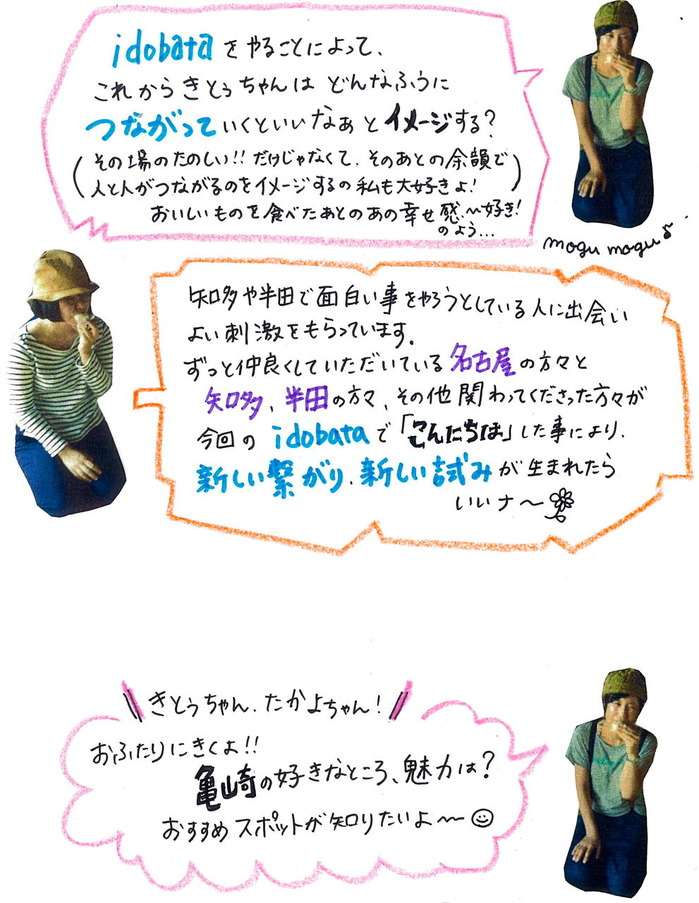 idobata をやることによって、
これからきとぅちゃんは どんなふうに
つながって いくといいなぁ と イメージする?
(その場のたのしい!! だけじゃなくて、そのあとの余韻で
人と人がつながるのをイメージするの私も大好きよ!)
おいしいものを食べたあとのあの幸せ感〜好き!
のよう…
mogu mogu♪
知多や半田で面白い事をやろうとしている人に出会い
よい刺激をもらっています。
ずっと仲良くしていただいている 名古屋の方々と
知多、半田の方々、その他関わってくださった方々が
今回の idobata で「こんにちは」した事により、
新しい繋がり、新しい試みが生まれたら
いいナ〜
きとぅちゃん、たかよちゃん!
おふたりにきくよ!!
亀崎の好きなところ、魅力は?
おすすめスポットが知りたいよ〜